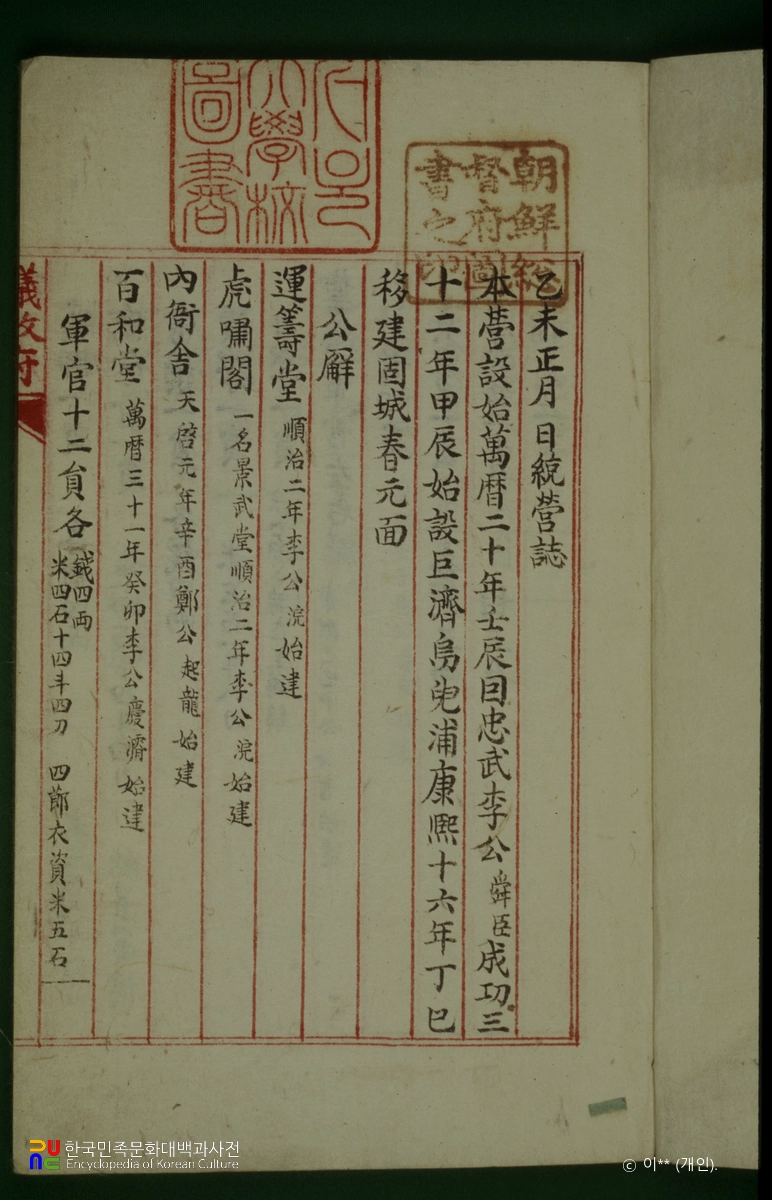 乙未正月 日統營誌
本營設始萬曆二十年壬辰因忠武李公 舜臣 成功三
十二年甲辰始設巨濟烏兒浦康熙十六年丁巳
移建固城春元面
公廨
運籌堂 順治二年李公 浣 始建
虎嘯閣 一名景武堂順治二年李公 浣 始建
內衙舍 天啓元年辛酉鄭公 起龍 始建
百和堂 萬曆三十一年癸卯李公 慶濬 始建
軍官十二員各 錢四両
米四石十四斗四刀 四節衣資米五石
議政府
朝鮮總
督府圖
書之印
大學校
圖書
한국민족문화대백과사전
Encyclopedia of Korean Culture
ⓒ 이** (개인).